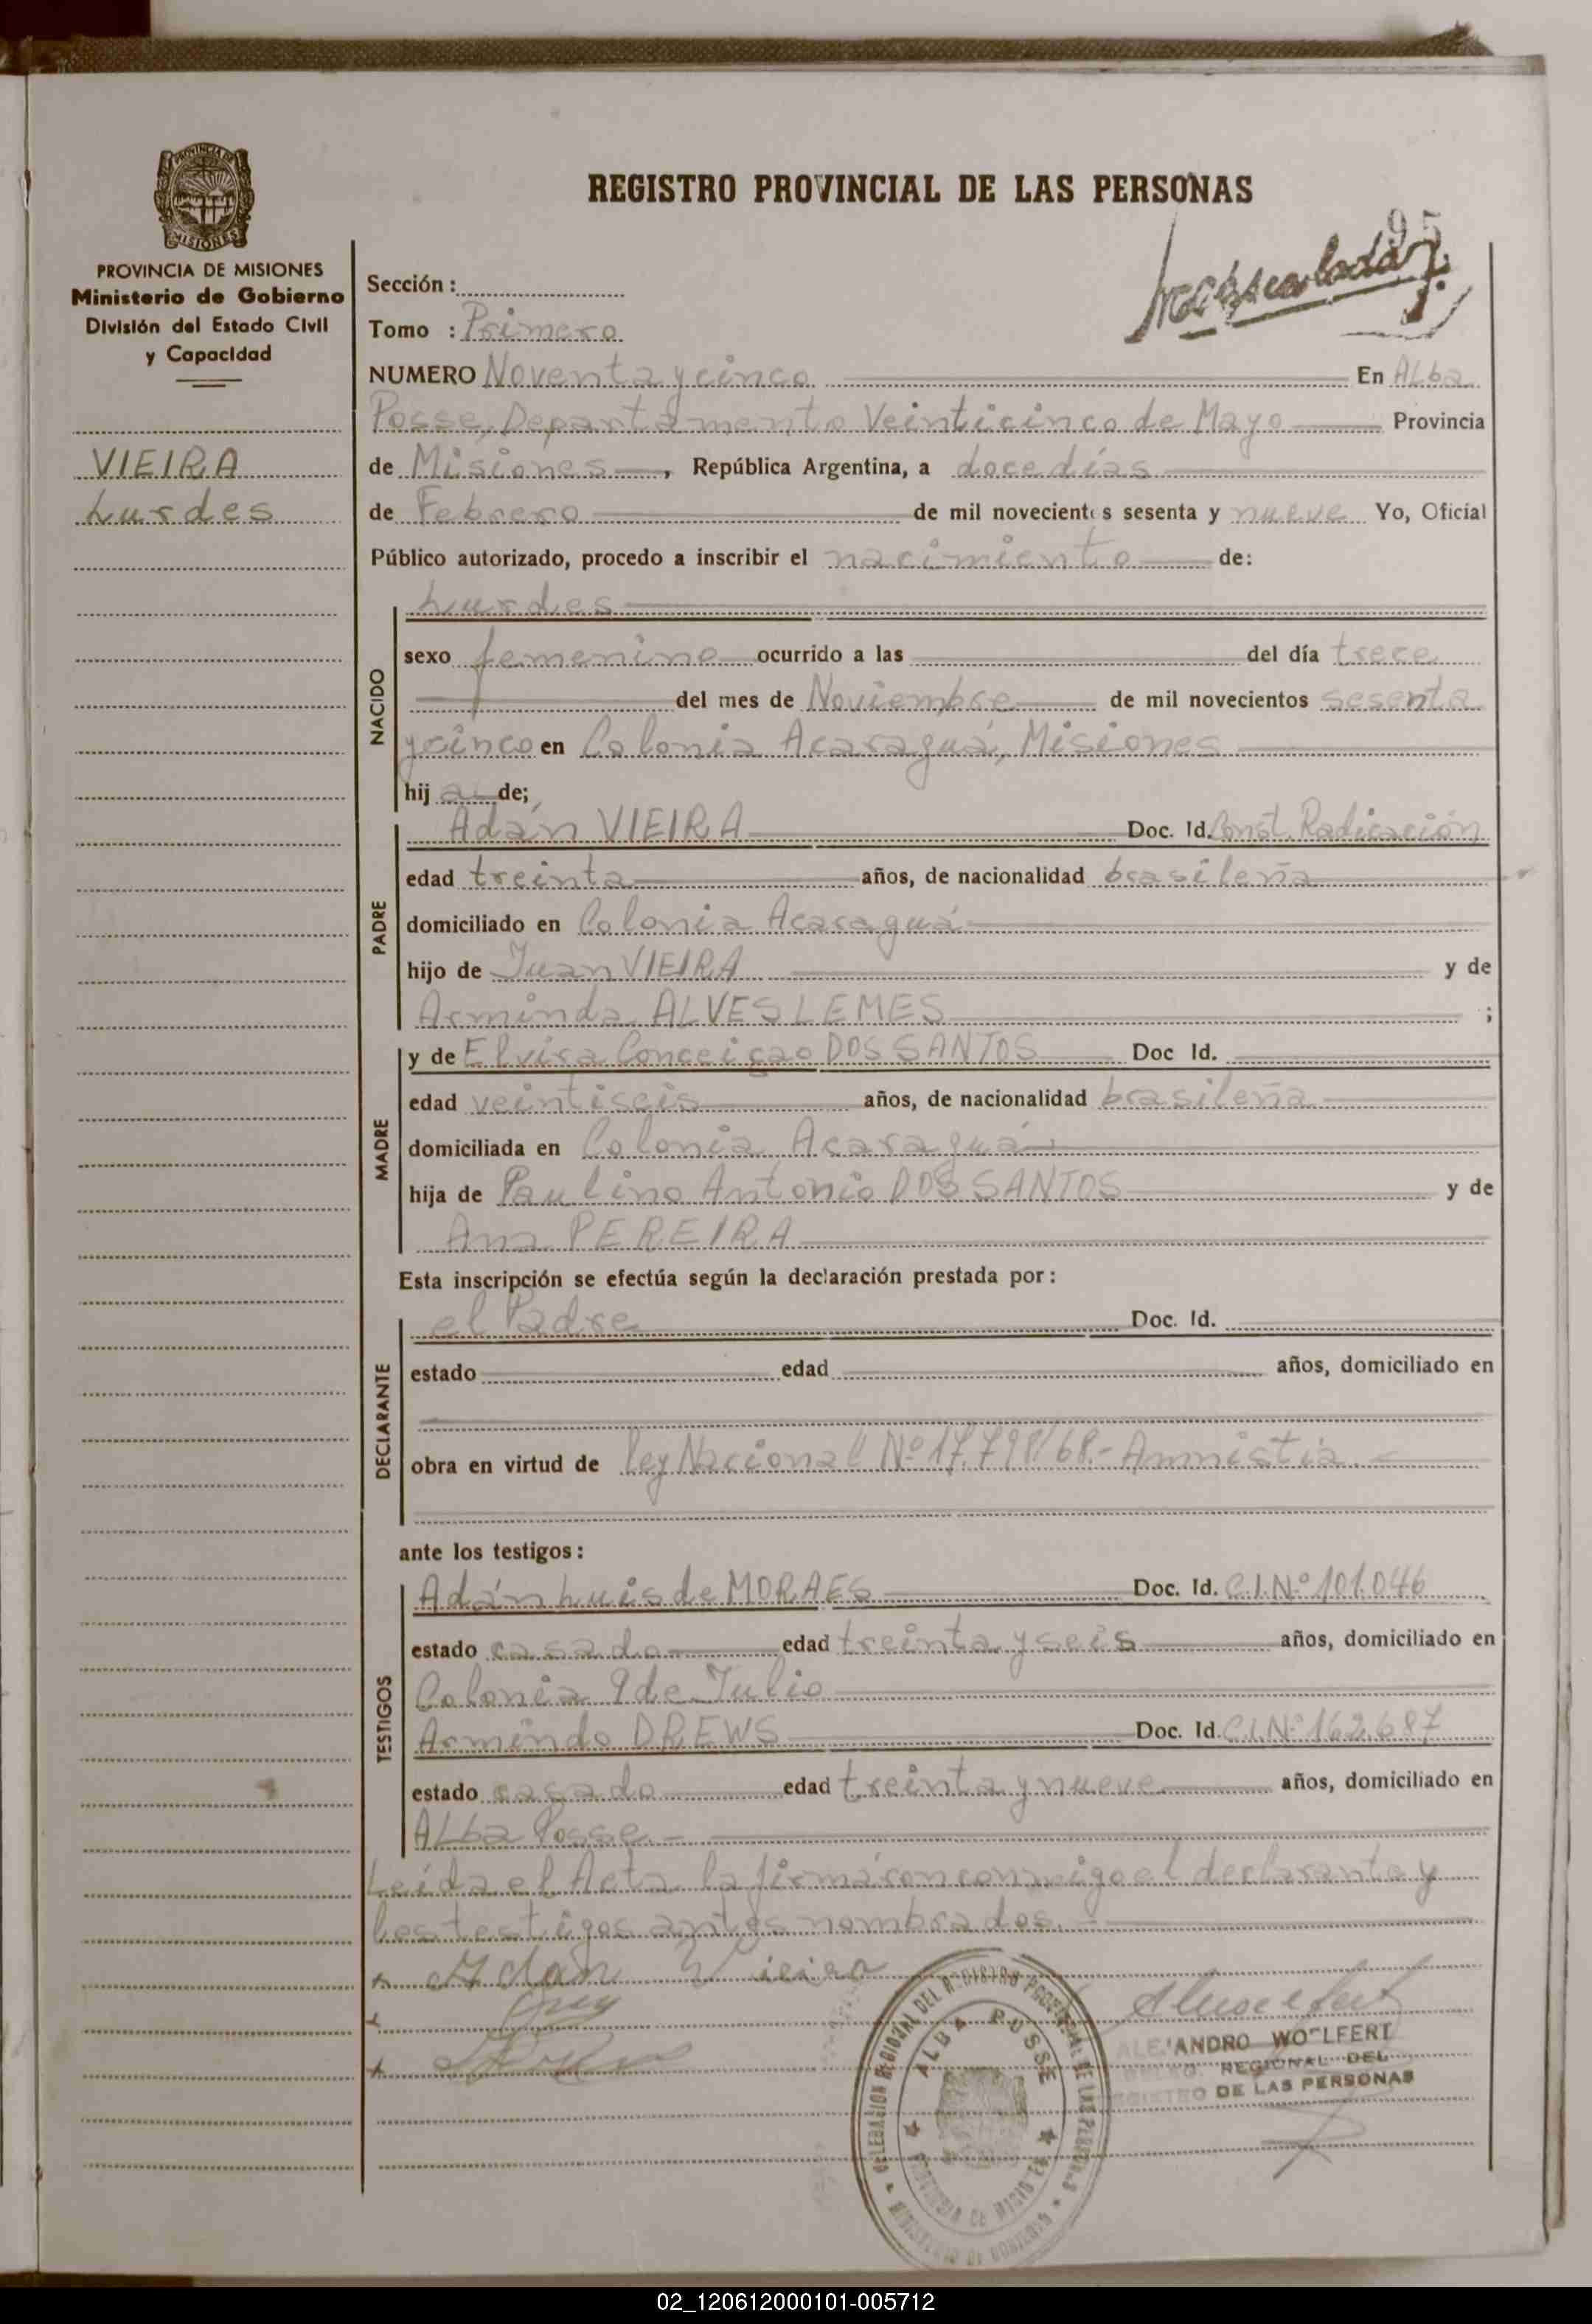 REGISTRO PROVINCIAL DE LAS PERSONAS
95
PROVINCIA DE MISIONES
MISIONES
PROVINCIA DE MISIONES
Ministerio de Gobierno
División del Estado Civil
y Capacidad
VIEIRA
Lurdes
Sección :
Tomo : Primero
NUMERO Noventa y cinco En Alba
Posse, Departamento Veinticinco de Mayo Provincia
de Misiones , República Argentina, a doce días
de Febrero de mil novecientos sesenta y nueve Yo, Oficial
Público autorizado, procedo a inscribir el nacimiento de:
NACIDO
Lurdes
sexo femenino ocurrido a las del día trece
del mes de Noviembre de mil novecientos sesenta
y cinco en Colonia Acaraguá, Misiones
hij a de;
PADRE
Adán VIEIRA Doc. Id. Const. Radicación
edad treinta años, de nacionalidad brasileña
domiciliado en Colonia Acaraguá
hijo de Juan VIEIRA y de
Arminda ALVES LEMES ;
MADRE
y de Elvira Conceiçao DOS SANTOS Doc Id.
edad veintiseis años, de nacionalidad brasileña
domiciliada en Colonia Acaraguá
hija de Paulino Antonio DOS SANTOS y de
Ana PEREIRA
Esta inscripción se efectúa según la declaración prestada por:
DECLARANTE
el Padre Doc. Id.
estado edad años, domiciliado en
obra en virtud de Ley Nacional Nº 17.798/68.- Amnistia.-
ante los testigos:
TESTIGOS
Adán Luis de MORAES Doc. Id. C.I.Nº 101.046
estado casado edad treinta y seis años, domiciliado en
Colonia 9 de Julio
Armindo DREWS Doc. Id. C.I.Nº 162.687
estado casado edad treinta y nueve años, domiciliado en
Alba Posse.-
Leída el Acta la firmáron conmigo el declarante y
los testigos antes nombrados.-
Adan Vieira
ALBA POSSE
ALEJANDRO WOLFERT
REGIONAL DEL
REGISTRO DE LAS PERSONAS
02_120612000101-005712